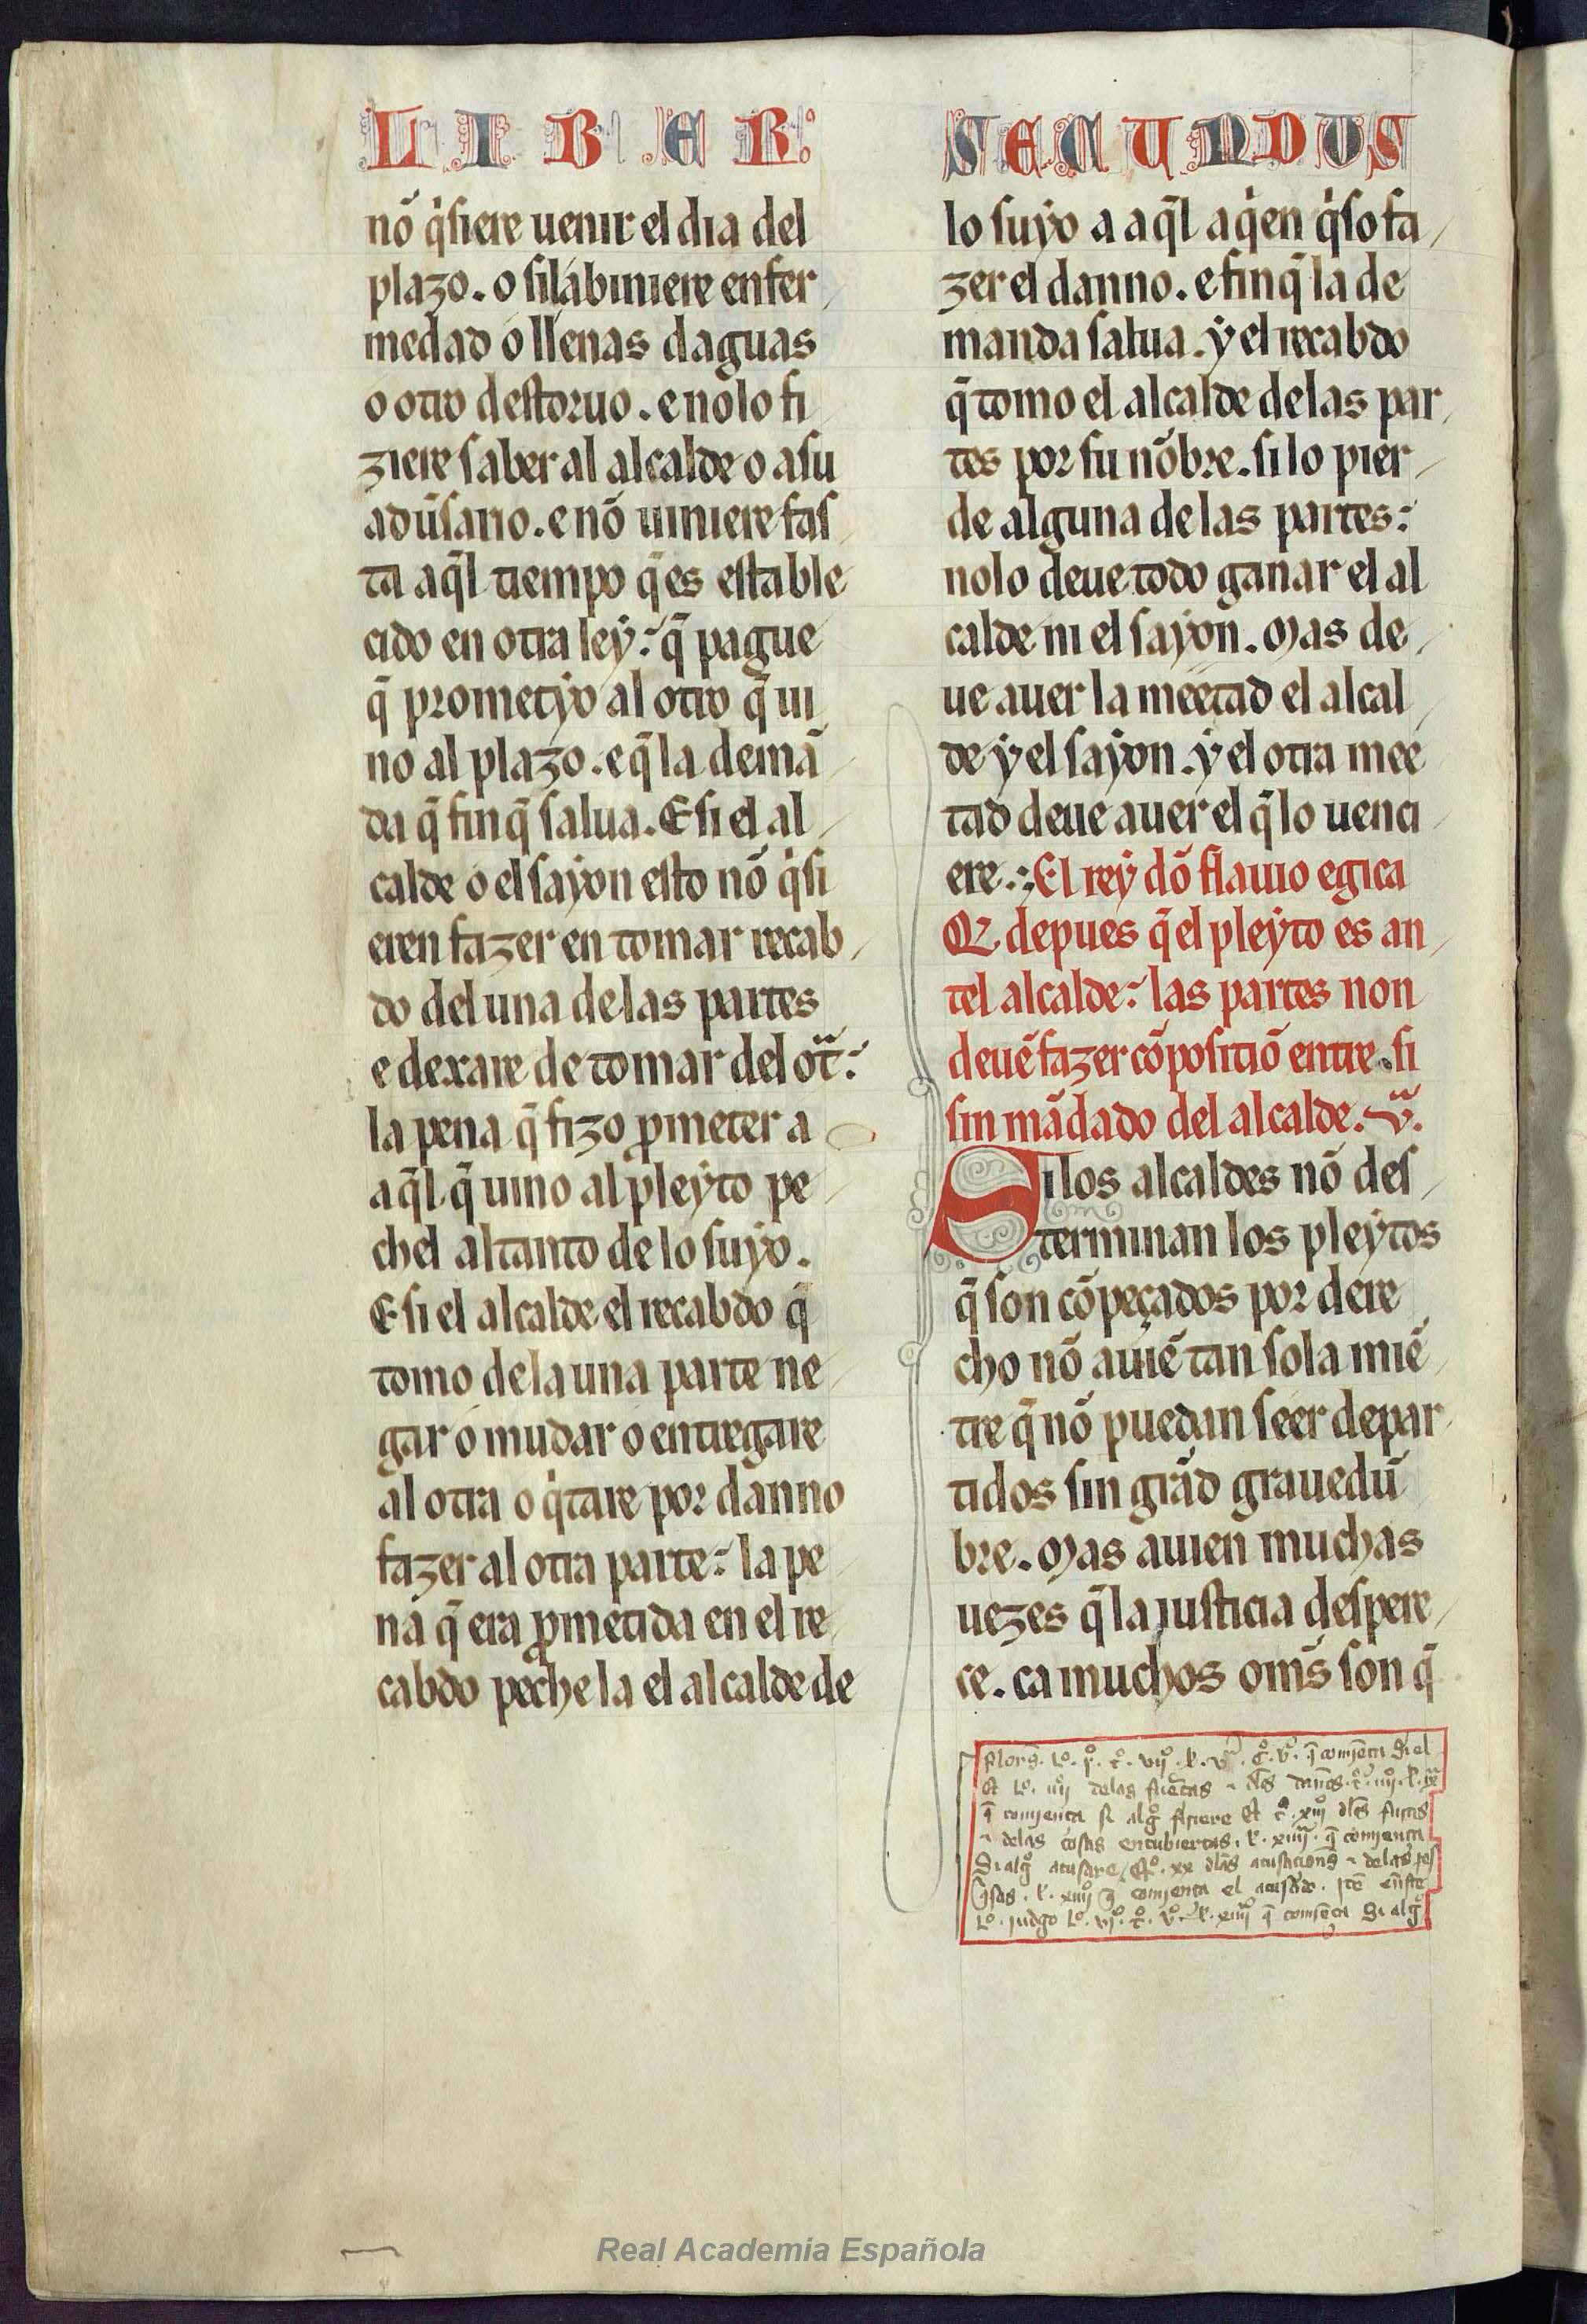 LIBER
nõ q̇siere uenir el dia del
plazo. o silabiniere enfer
medad o llenas daguas
o otro destoruo. e nõlo fi
ziere saber al alcalde o asu
adũsario. e nõ uiniere fas
ta aq̃l tiempo q̃es estable
cido en otra leẏ: q̃ pague
q̃ prometẏo al otro q̃ ui
no al plazo. e q̃la demã
da q̃ finq̃ salua. E si el al
calde o el saẏon esto nõ q̇si
eren fazer en tomar recab
do del una delas partes
e dexare de tomar del ot̃:
la pena q̃ fizo ꝓmeter a
aq̃l q̃ uino al pleẏto pe
chel altanto de lo suẏo.
E si el alcalde el recabdo q̃
tomo dela una parte ne
gar o mudar o entregare
al otra o q̇tare por danno
fazer al otra parte: la pe
na q̃ era ꝓmetida en el re
cabdo peche la el alcalde de
SECUNDUS
lo suẏo a aq̃l a q̇en q̇so fa
zer el danno. e finq̃ la de
manda salua. ẏ el recabdo
q̃ tomo el alcalde delas par
tes por su nõbre. si lo pier
de alguna delas partes:
nolo deue todo ganar el al
calde ni el saẏon. Mas de
ue auer la meetad el alcal
de ẏ el saẏon. ẏ el otra mee
tad deue auer el q̃ lo uenci
ere.: El reẏ dõ flauio egica
Q̃ depues q̃ el pleẏto es an
tel alcalde: las partes non
deuẽ fazer cõpositiõ entre si
sin mãdado del alcalde. v.ª
Si los alcaldes nõ des
terminan los pleẏtos
q̃ son cõpeçados por dere
cho nõ auiẽ tan sola miẽ
tre q̃ nõ puedan seer depar
tidos sin grãd grauedũ
bre. Mas auien muchas
uezes q̃ la justicia despere
ce. ca muchos om̃s son q̃
q̃ comjença si alg̊ fisiere
delas cosas encubiertas. q̃ comjença
Si alg̊ acusare
comjença el acusado.
q̃ comjẽça Si alg̊